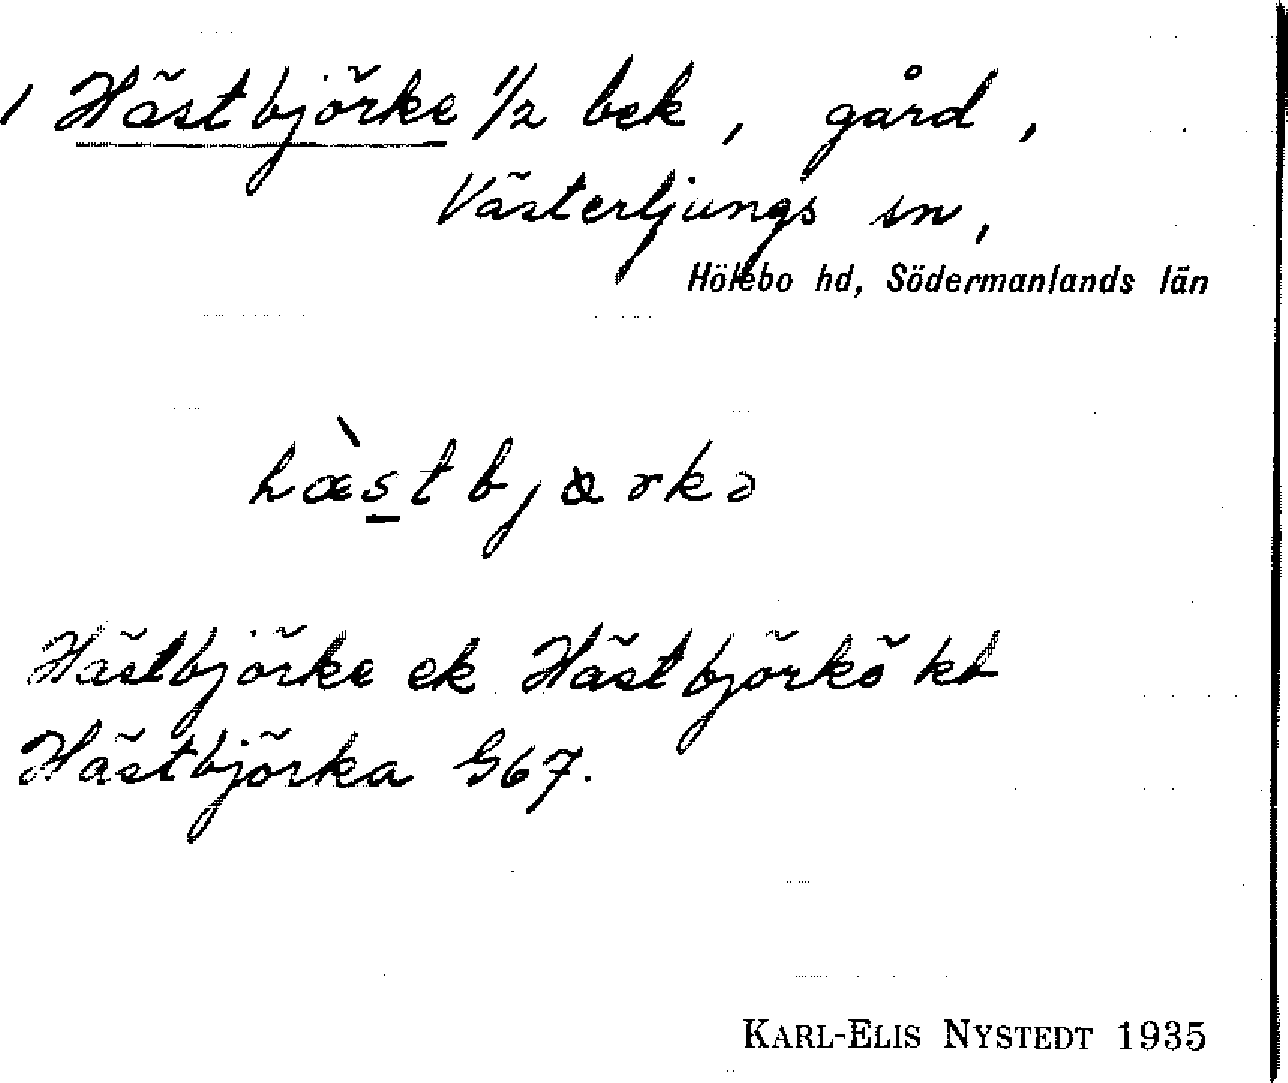 1 Hästbjörke 1/2 bek, gård,
Västerljungs sn,
Hölebo hd, Södermanlands län
hæ̀stbjɵrkə
Hästbjörke ek Hästbjörkö kb
Hästbjörka G67.
KARL-ELIS NYSTEDT 1935